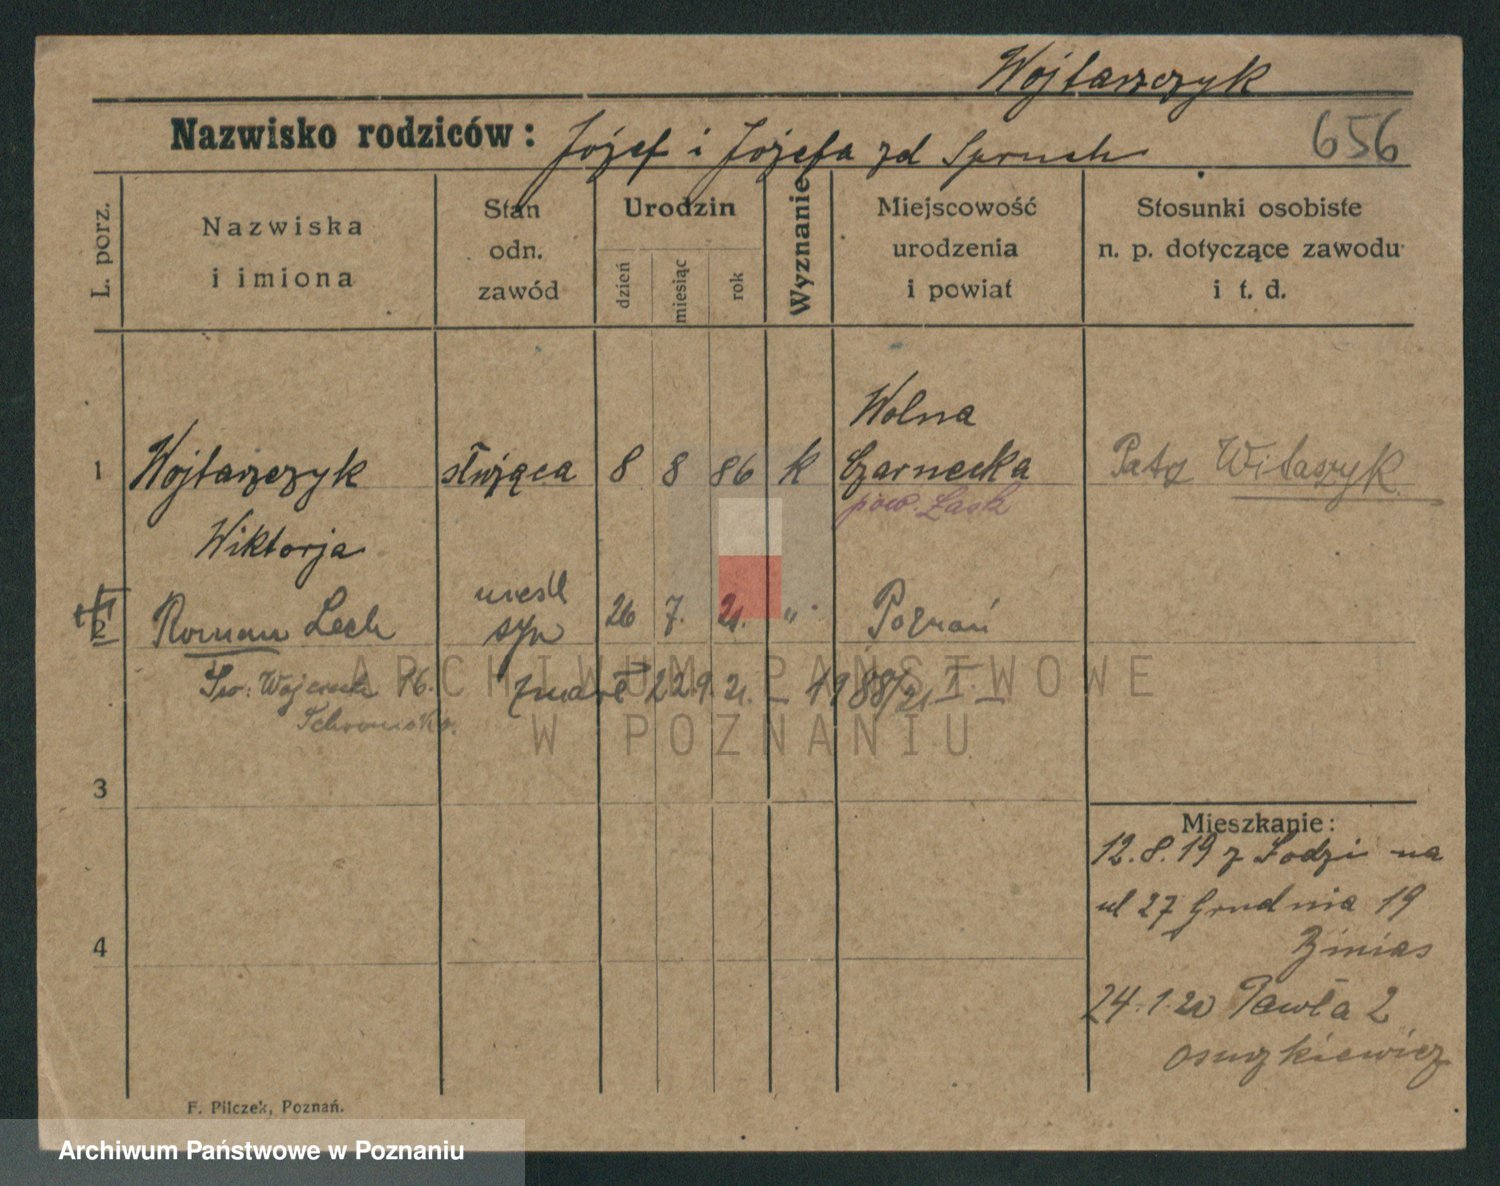 Wojtaszczyk
Nazwisko rodziców: Józef i Józefa zd Spruch
656
L. porz.
Nazwiska
i imiona
Stan
odn.
zawód
Urodzin
dzień
miesiąc
rok
Wyznanie
Miejscowość
urodzenia
i powiat
Stosunki osobiste
n. p. dotyczące zawodu
i t. d.
Wolna
1 Wojtaszczyk służąca 8 8 86 k Czarnecka Patz Witaszyk
pow. Łask
Wiktorja
nieśl
2 Roman Lech syn 26 7. 21. „ Poznań
zmarł 22 9. 21. – 1988/21 I –
ARCHIWUM PAŃSTWOWE
W POZNANIU
3
Mieszkanie:
12.8.19 z Łodzi na
ul 27 Grudnia 19
4
24.1.20 Pawła 2
F. Pilczek, Poznań.
Archiwum Państwowe w Poznaniu